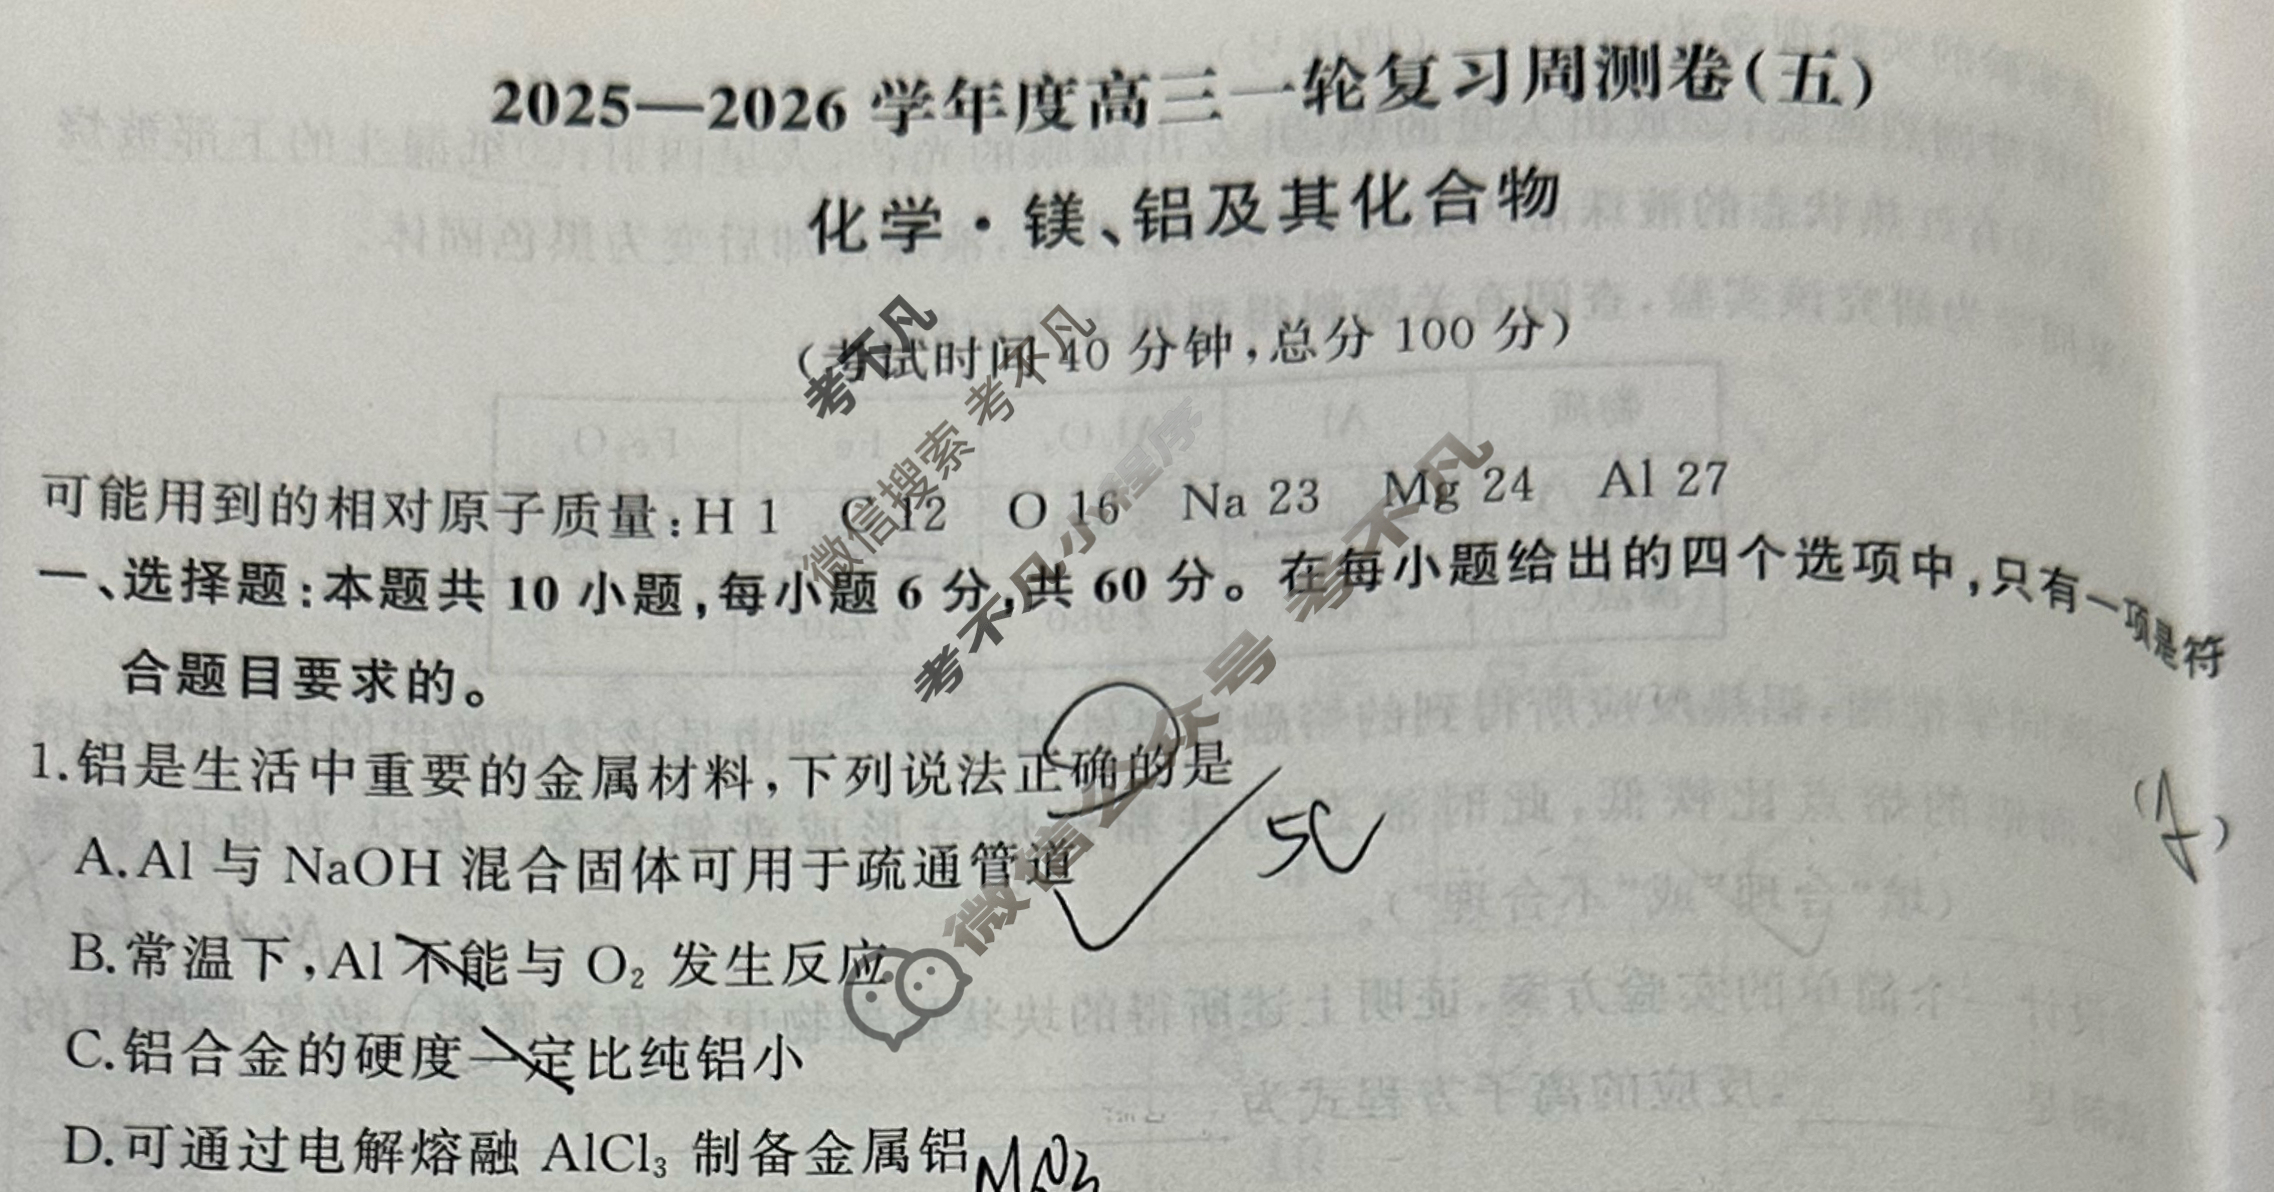 2025—2026 学年度高三一轮复习周测卷(五)
化学·镁、铝及其化合物
(考试时间 40 分钟,总分 100 分)
可能用到的相对原子质量:H 1 C 12 O 16 Na 23 Mg 24 Al 27
一、选择题:本题共 10 小题,每小题 6 分,共 60 分。在每小题给出的四个选项中,只有一项是符
合题目要求的。
1.铝是生活中重要的金属材料,下列说法正确的是
A.Al 与 NaOH 混合固体可用于疏通管道
B.常温下,Al 不能与 O₂ 发生反应
C.铝合金的硬度一定比纯铝小
D.可通过电解熔融 AlCl₃ 制备金属铝
考不凡
微信搜索 考不凡
考不凡小程序
微信公众号 考不凡